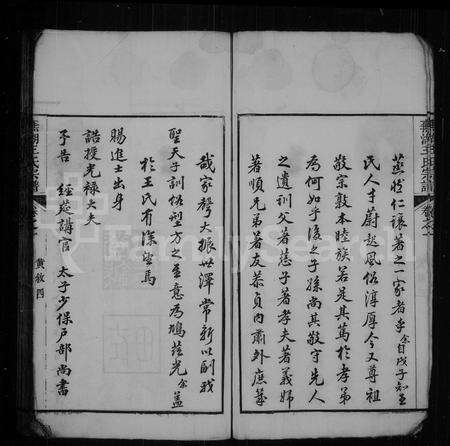 蕪湖王氏宗譜
蒸然仁讓著之一家者乎余自戊子知
民人才蔚起風俗淳厚今又尊祖
敬宗敦本睦族若是其篤於孝弟
為何如乎後之子孫尚其敬守先人
之遺訓父著慈子著孝夫著義婦
著順兄弟著友恭貞內肅外庶幾
哉家聲大振世澤常新以副我
聖天子訓俗型方之至意為鳩茲光余蓋
於王氏有深望焉
賜進士出身
誥授光祿大夫
予告 經筵講官 太子少保戶部尚書
蕪湖王氏宗譜
黃敘 四
FamilySearch